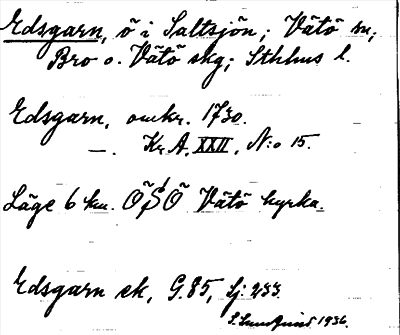 Edsgarn, ö i Saltsjön; Vätö sn;
Bro o. Vätö skg; Sthlms l.
Edsgarn, omkr. 1730.
—. Kr. A. XXII, N:o 15.
Läge 6 km. ÖSÖ Vätö kyrka.
Edsgarn ek, G. 85, Sj: 233.
S. Lundquist 1936.